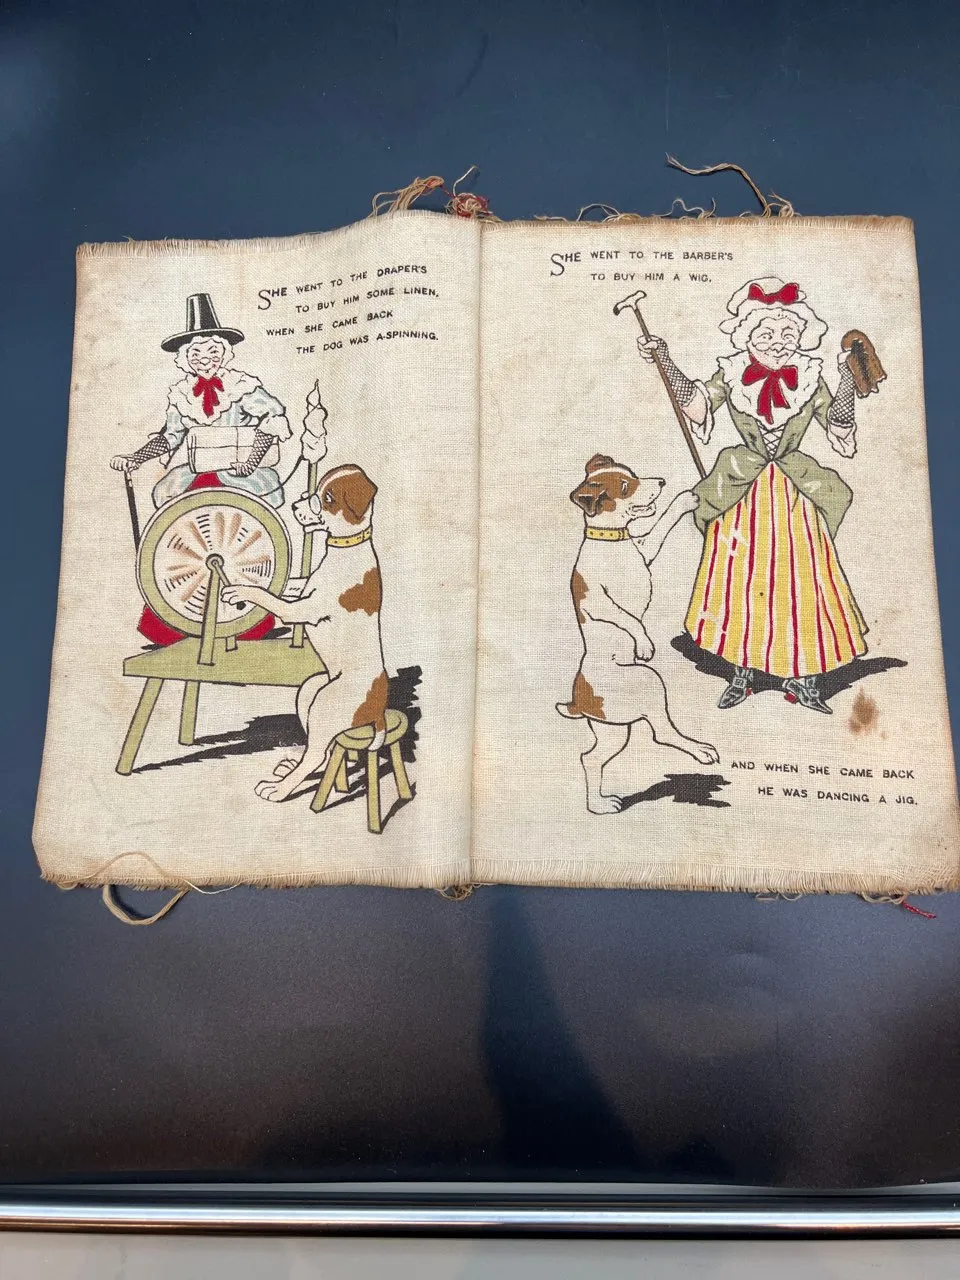 SHE WENT TO THE DRAPER'S
TO BUY HIM SOME LINEN,
WHEN SHE CAME BACK
THE DOG WAS A-SPINNING.
SHE WENT TO THE BARBER'S
TO BUY HIM A WIG,
AND WHEN SHE CAME BACK
HE WAS DANCING A JIG.